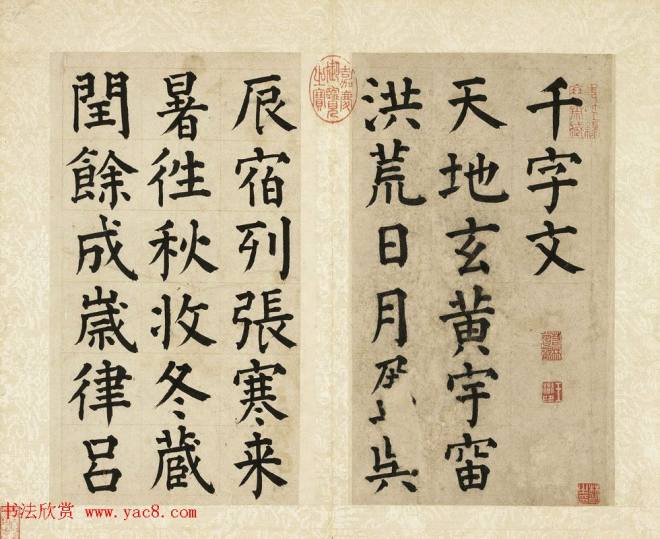 千字文
天地玄黃宇宙
洪荒日月
嘉慶御覽之寶
辰宿列張寒来
暑徃秋收冬蔵
閏餘成嵗律呂
书法欣赏 www.yac8.com